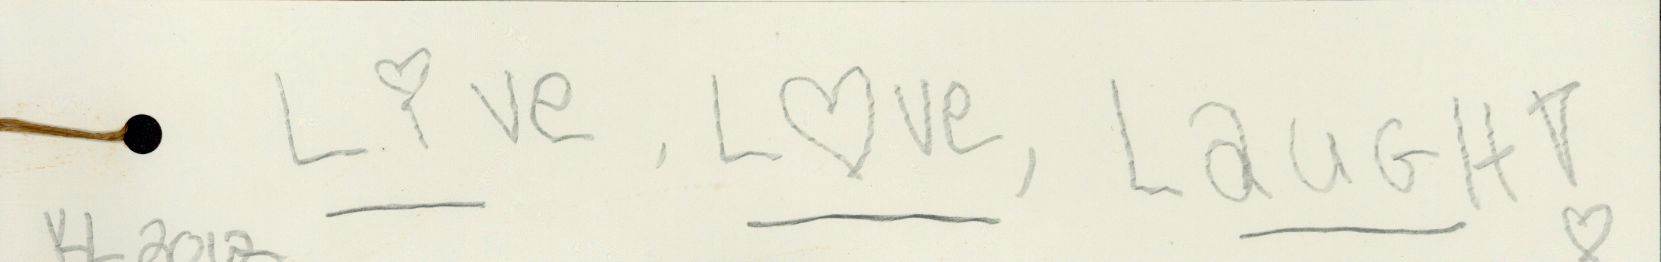 Live, L♡ve, LauGH!
KL 2012